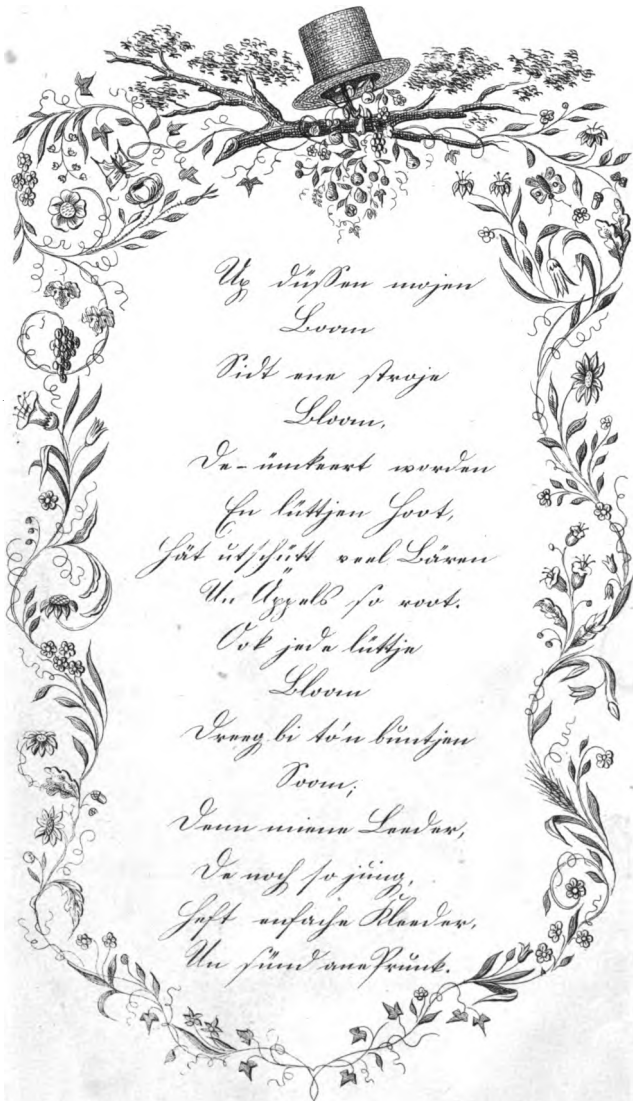 Up düssen mojen
Boom
Sidt ene stroje
Bloom,
De ümkeert worden
En lüttjen Hoot,
Hät utschütt veel Bären
Un Äppels so root.
Ook jede lüttje
Bloom
Dreeg bi to'n buntjen
Soom;
Denn miene Leeder,
De noch so jung,
Heft enfache Kleeder,
Un sünd ane Prunk.